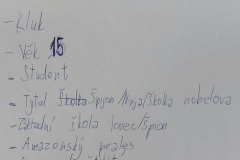 - Kluk
- Věk 15
- Student
- Tytul Školka Špijon Nynja/školka nobelova
- Základní škola lovec/špion
- Amazonský prales